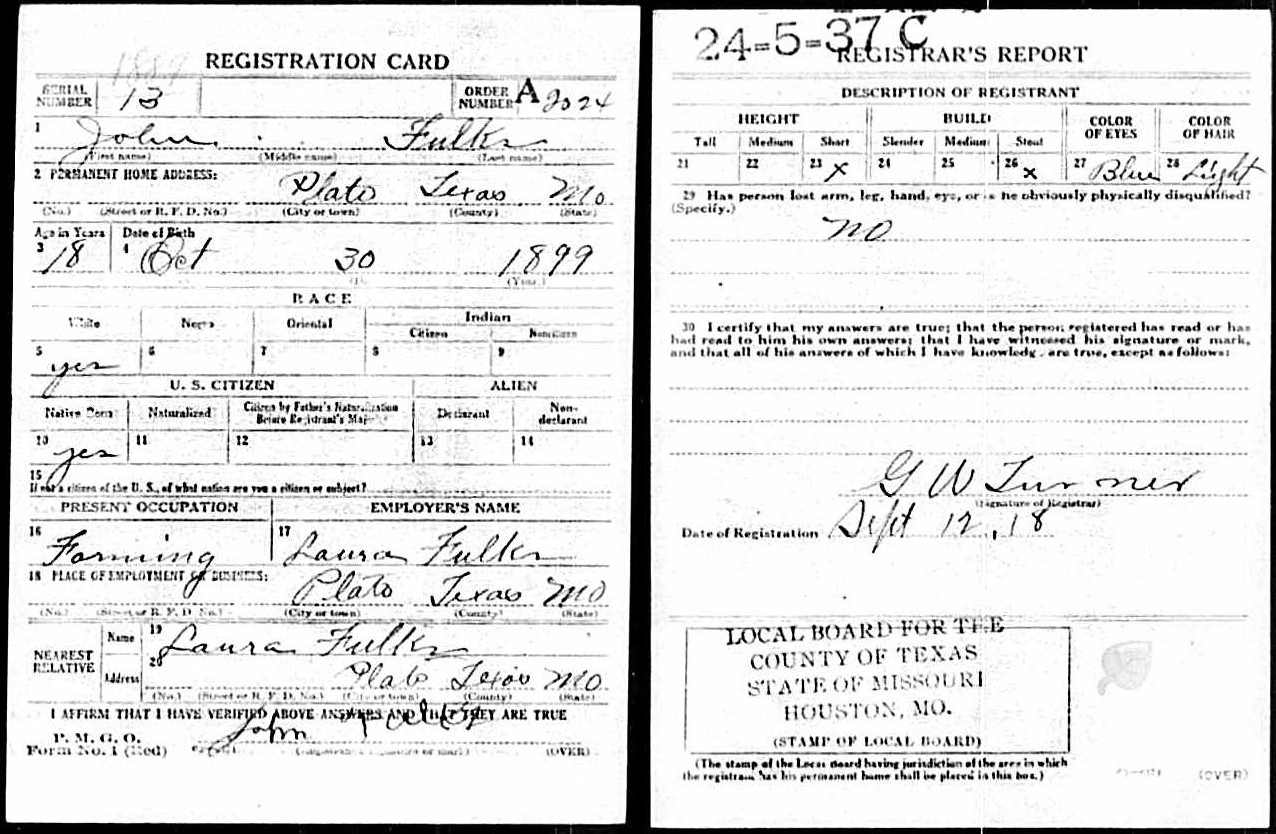 1889
REGISTRATION CARD
SERIAL NUMBER 13 ORDER NUMBER A 2024
1 John Fulks
(First name) (Middle name) (Last name)
2 PERMANENT HOME ADDRESS: Plato Texas Mo
(No.) (Street or R. F. D. No.) (City or town) (County) (State)
Age in Years Date of Birth
3 18 4 Oct 30 1899
(Year.)
RACE
White Negro Oriental Indian
Citizen Noncitizen
5 6 7 8 9
yes
U. S. CITIZEN ALIEN
Native Born Naturalized Citizen by Father's Naturalization Before Registrant's Majority Declarant Non-declarant
10 11 12 13 14
yes
15
If not a citizen of the U. S., of what nation are you a citizen or subject?
PRESENT OCCUPATION EMPLOYER'S NAME
16 Farming 17 Laura Fulks
18 PLACE OF EMPLOYMENT OR BUSINESS: Plato Texas Mo
(No.) (Street or R. F. D. No.) (City or town) (County) (State)
NEAREST RELATIVE Name 19 Laura Fulks
Address 20 Plato Texas Mo
(No.) (Street or R. F. D. No.) (City or town) (County) (State)
I AFFIRM THAT I HAVE VERIFIED ABOVE ANSWERS AND THAT THEY ARE TRUE
P. M. G. O.
Form No. 1 (Red) John Fulks (OVER)
24-5-37 C
REGISTRAR'S REPORT
DESCRIPTION OF REGISTRANT
HEIGHT BUILD COLOR OF EYES COLOR OF HAIR
Tall Medium Short Slender Medium Stout
21 22 23 x 24 25 26 x 27 Blue 28 Light
29 Has person lost arm, leg, hand, eye, or is he obviously physically disqualified?
(Specify.)
no
30 I certify that my answers are true; that the person registered has read or has
had read to him his own answers; that I have witnessed his signature or mark,
and that all of his answers of which I have knowledge are true, except as follows:
G W Turner
(Signature of Registrar)
Date of Registration Sept 12, 18
LOCAL BOARD FOR THE
COUNTY OF TEXAS
STATE OF MISSOURI
HOUSTON, MO.
(STAMP OF LOCAL BOARD)
(The stamp of the Local Board having jurisdiction of the area in which
the registrant has his permanent home shall be placed in this box.)
(OVER)